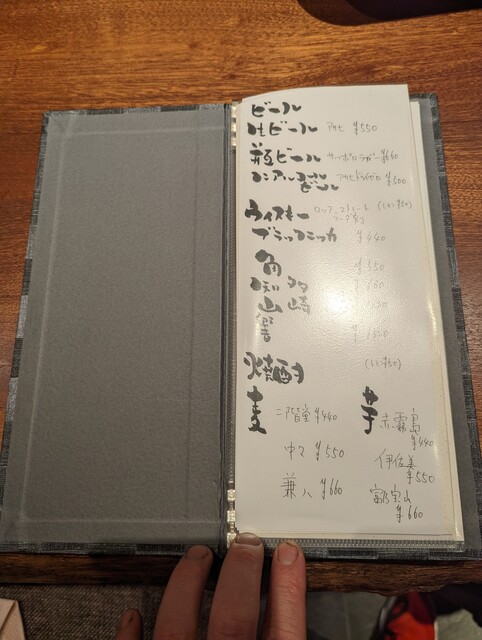 ビール
生ビール アサヒ ¥550
瓶ビール サッポロラガー ¥660
ノンアルコールビール アサヒドライゼロ ¥500
ウィスキー ロック ストレート
ブラックニッカ ¥440
角 ¥550
知多
山崎
響
焼酎
麦 芋
二階堂 ¥440 赤霧島 ¥440
中々 ¥550 伊佐美 ¥550
兼八 ¥660 富乃宝山 ¥660